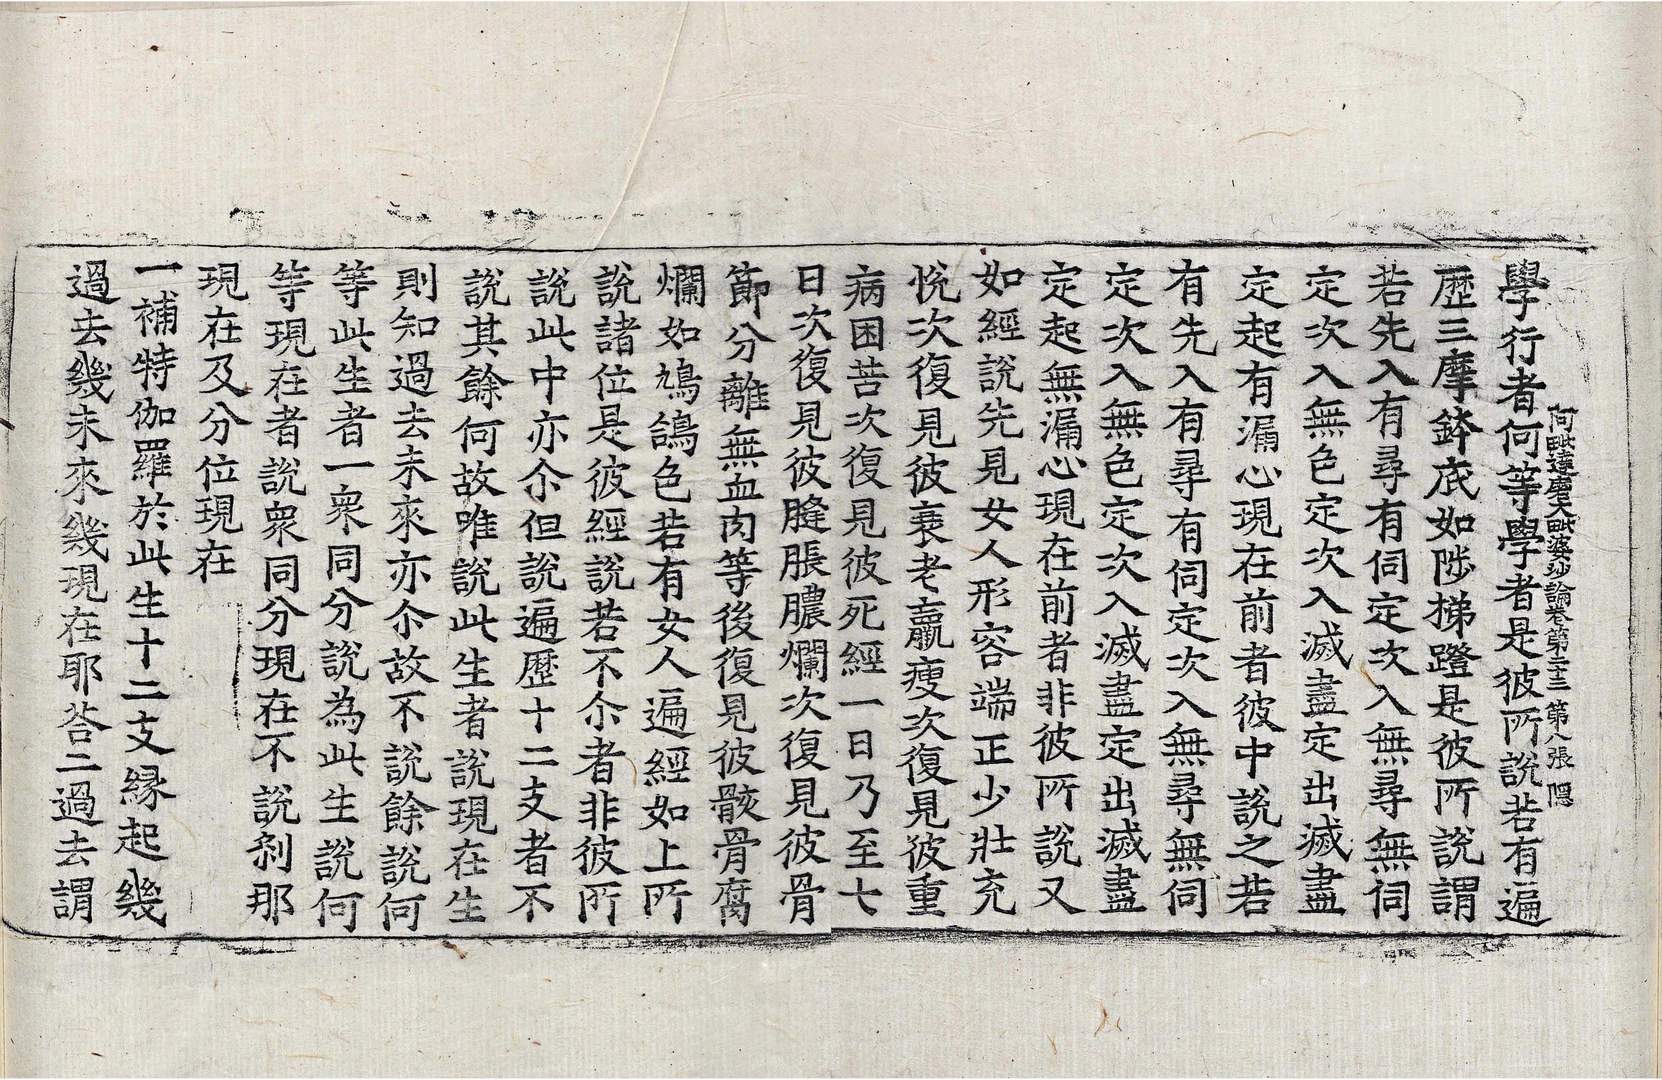 阿毗達磨大毗婆沙論卷第二十三 第八張 隱
學行者何等學者是彼所說若有遍
歷三摩鉢底如陟梯蹬是彼所說謂
若先入有尋有伺定次入無尋無伺
定次入無色定次入滅盡定出滅盡
定起有漏心現在前者彼中說之若
有先入有尋有伺定次入無尋無伺
定次入無色定次入滅盡定出滅盡
定起無漏心現在前者非彼所說又
如經說先見女人形容端正少壯充
悅次復見彼衰老羸瘦次復見彼重
病困苦次復見彼死經一日乃至七
日次復見彼膖脹膿爛次復見彼骨
節分離無血肉等後復見彼骸骨腐
爛如鳩鴿色若有女人遍經如上所
說諸位是彼經說若不尒者非彼所
說此中亦尒但說遍歷十二支者不
說其餘何故唯說此生者說現在生
則知過去未來亦尒故不說餘說何
等此生者一衆同分說為此生說何
等現在者說衆同分現在不說刹那
現在及分位現在
一補特伽羅於此生十二支緣起幾
過去幾未來幾現在耶荅二過去謂